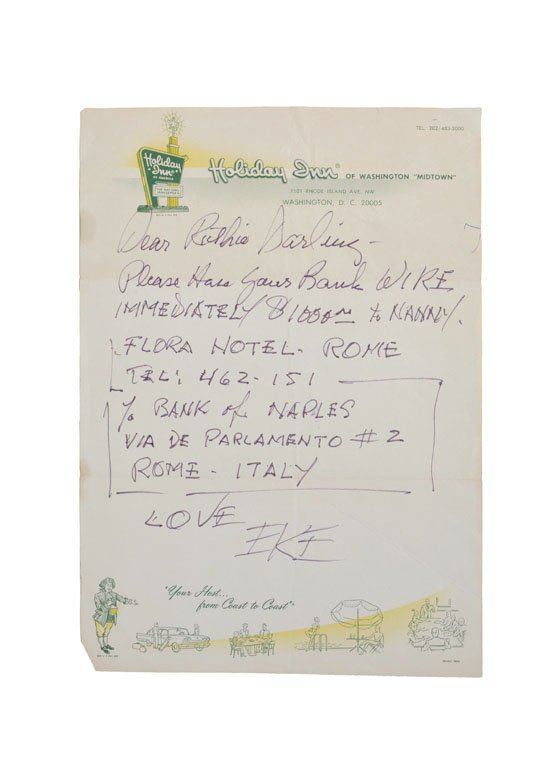 TEL. 202/483-2000
Holiday Inn
OF AMERICA
Holiday Inn® OF WASHINGTON "MIDTOWN"
1501 RHODE ISLAND AVE. NW
WASHINGTON, D. C. 20005
Dear Ruthie Darling -
Please Have Your Bank WIRE
IMMEDIATELY $1000 to NANNY.
FLORA HOTEL. ROME
TEL: 462-151
% BANK of NAPLES
VIA DE PARLAMENTO #2
ROME - ITALY
LOVE
EKE
"Your Host...
from Coast to Coast"®